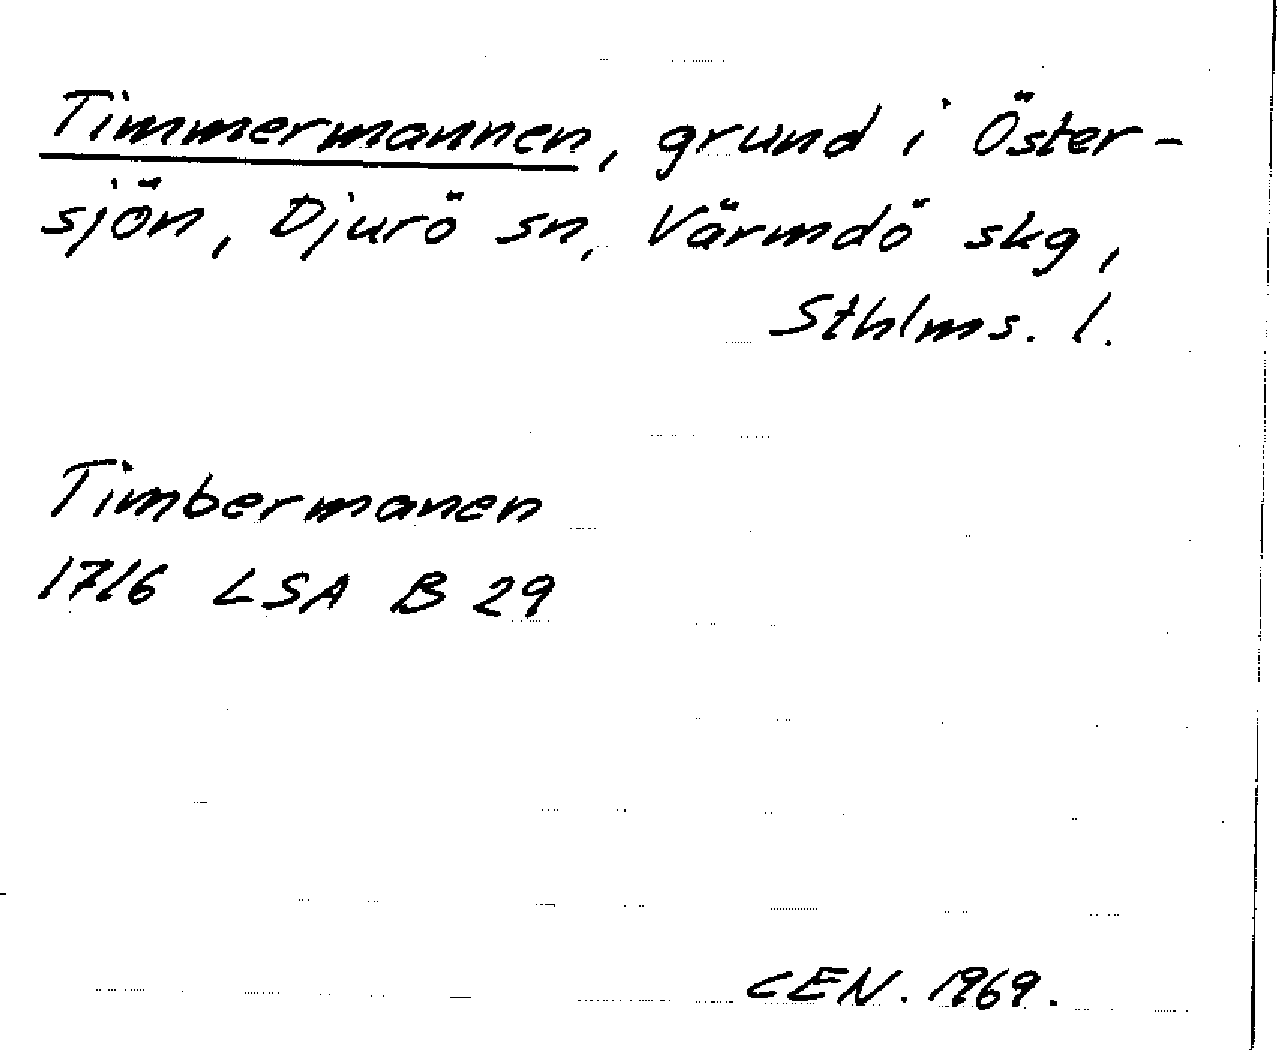 Timmermannen, grund i Öster-
sjön, Djurö sn, Värmdö skg,
Sthlms. l.
Timbermanen
1716 LSA B 29
CEN. 1969.